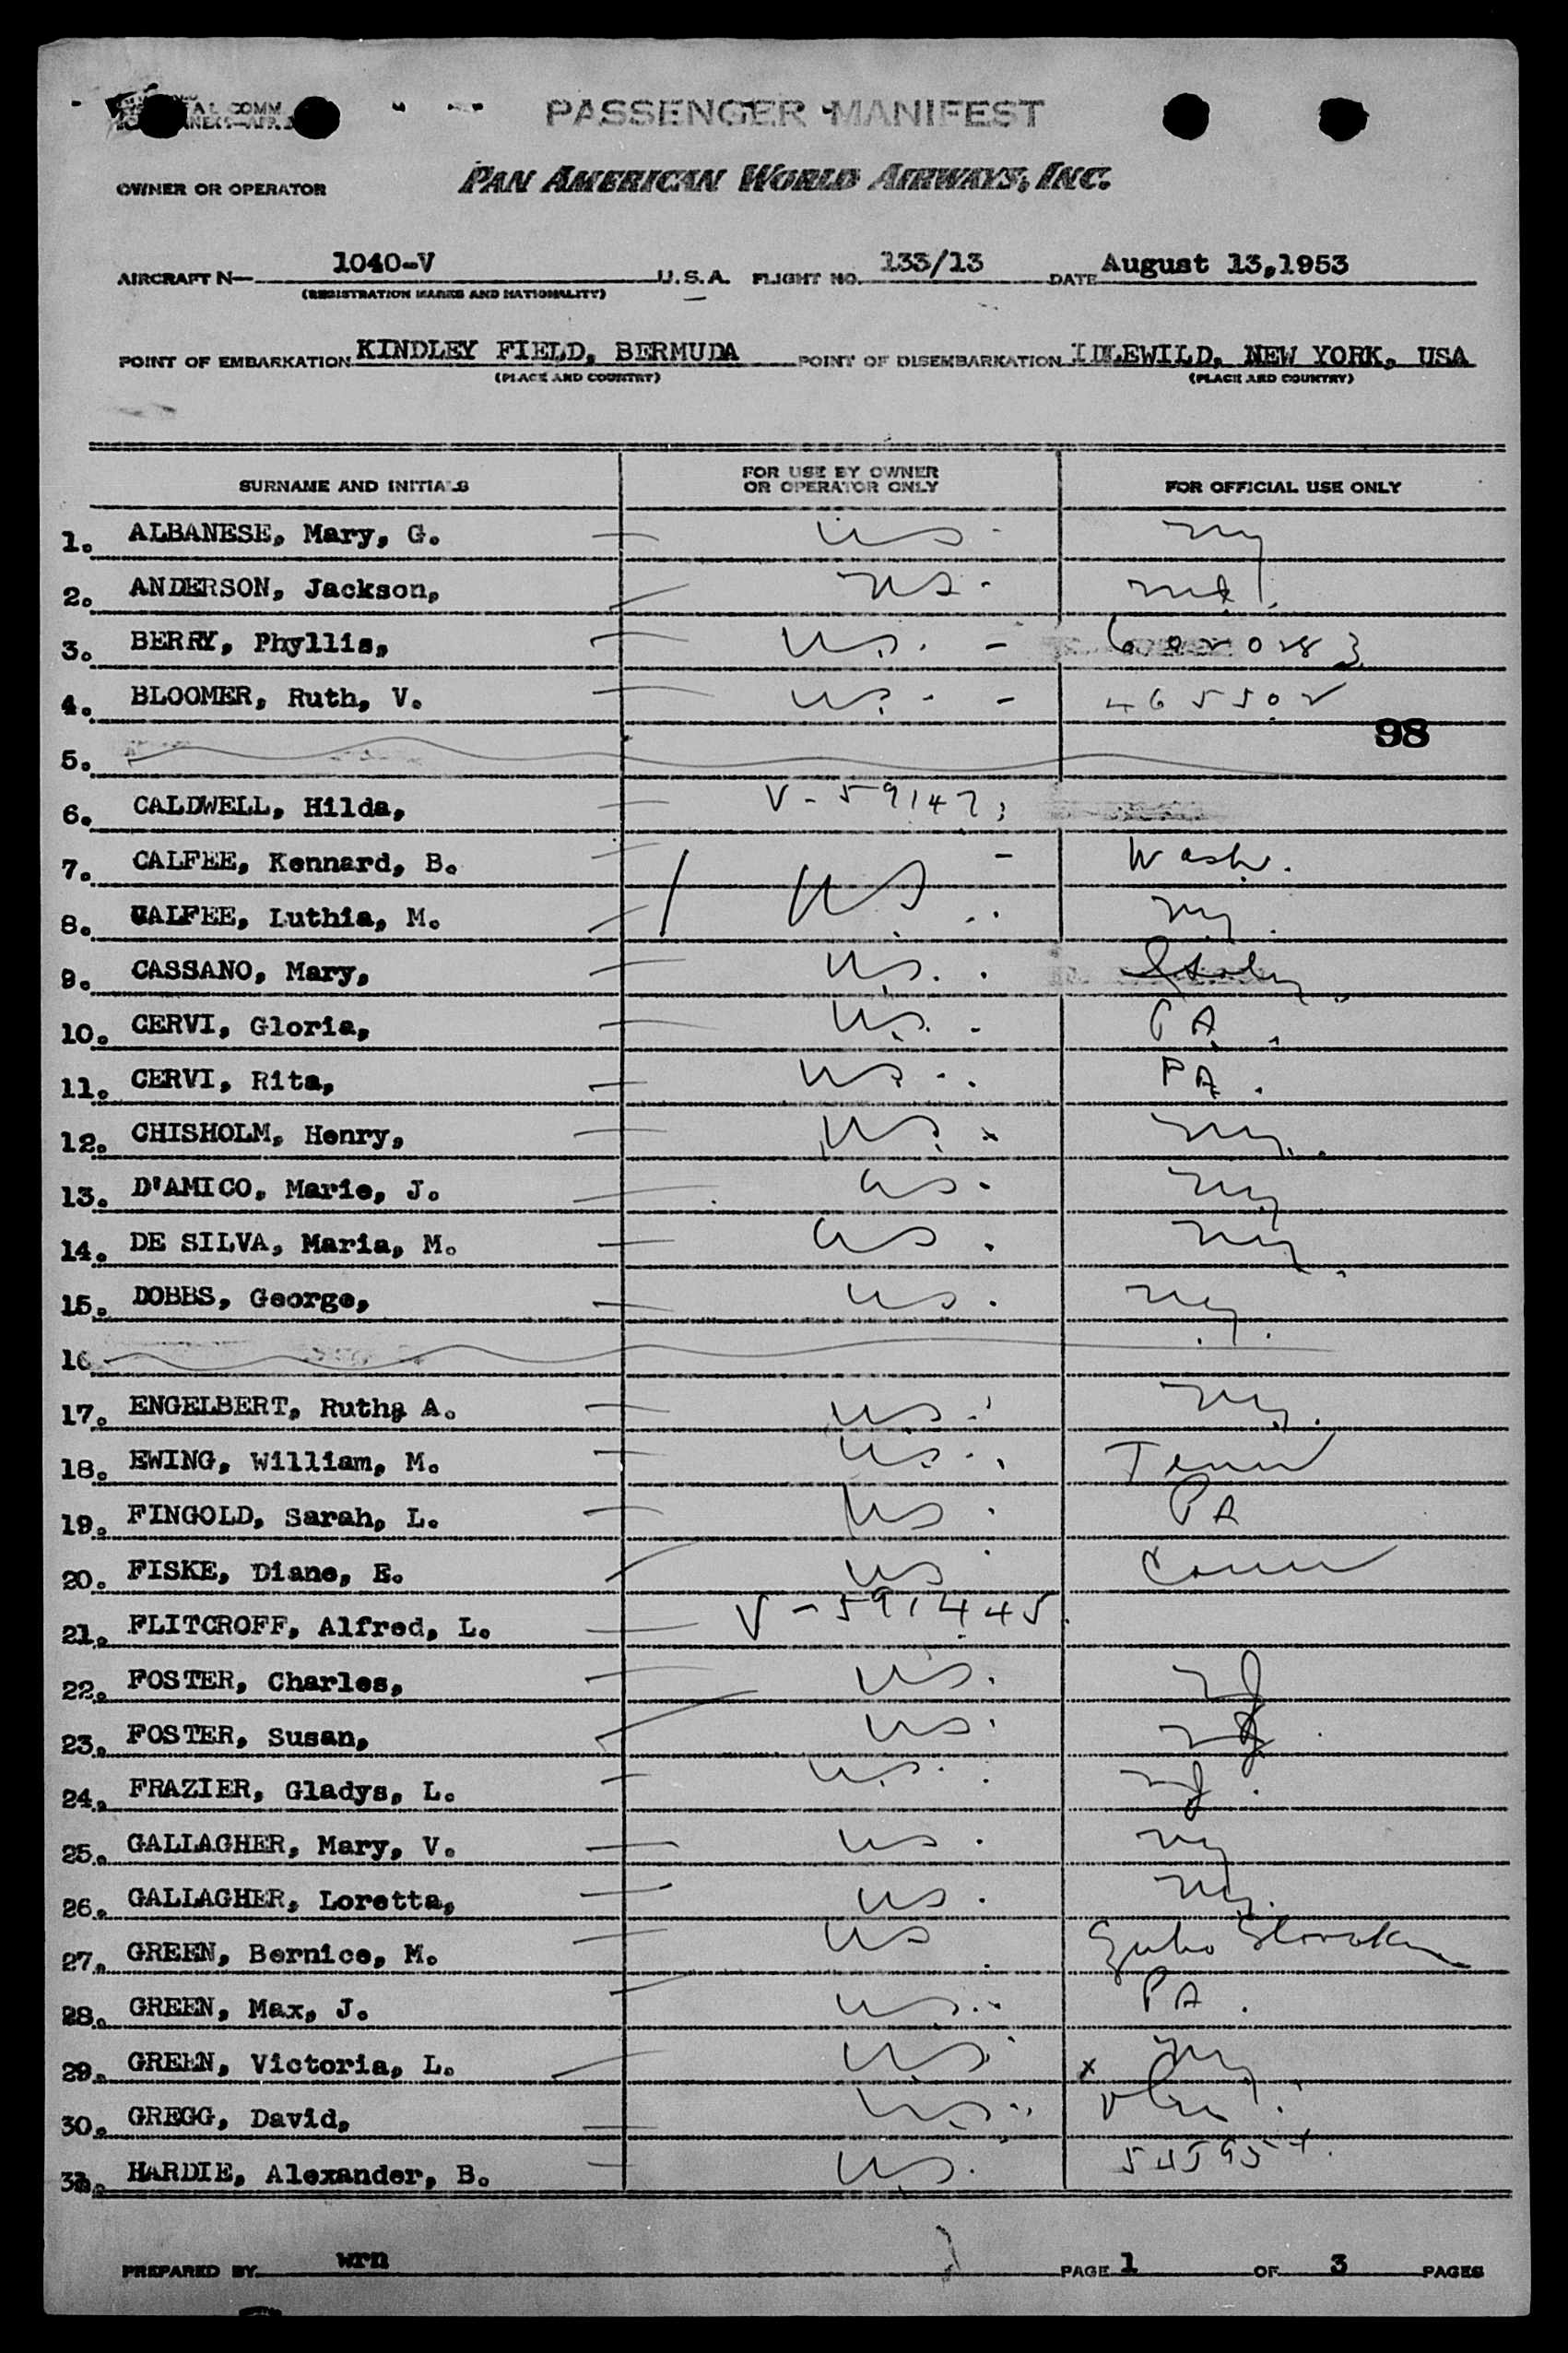 PASSENGER MANIFEST
OWNER OR OPERATOR PAN AMERICAN WORLD AIRWAYS, INC.
AIRCRAFT N— 1040-V U.S.A. FLIGHT NO. 133/13 DATE August 13,1953
(REGISTRATION MARKS AND NATIONALITY)
POINT OF EMBARKATION KINDLEY FIELD, BERMUDA POINT OF DISEMBARKATION IDLEWILD, NEW YORK, USA
(PLACE AND COUNTRY) (PLACE AND COUNTRY)
SURNAME AND INITIALS FOR USE BY OWNER OR OPERATOR ONLY FOR OFFICIAL USE ONLY
1. ALBANESE, Mary, G. US - NY
2. ANDERSON, Jackson, US - Md.
3. BERRY, Phyllis, US. -
4. BLOOMER, Ruth, V. US. - 465502
98
5.
6. CALDWELL, Hilda,
7. CALFEE, Kennard, B. - Wash.
8. CALFEE, Luthia, M. US NY.
9. CASSANO, Mary, US. Italy
10. CERVI, Gloria, US. - PA.
11. CERVI, Rita, US. PA.
12. CHISHOLM, Henry, US. NY.
13. D'AMICO, Marie, J. US. NY
14. DE SILVA, Maria, M. US. NY.
15. DOBBS, George, US. NY.
16
17. ENGELBERT, Ruth, A. US. NY.
18. EWING, William, M. US. Tenn
19. FINGOLD, Sarah, L. US. PA
20. FISKE, Diane, E. US Conn
21. FLITCROFF, Alfred, L. V-591445
22. FOSTER, Charles, US. NJ
23. FOSTER, Susan, US. NJ.
24. FRAZIER, Gladys, L. US. NJ.
25. GALLAGHER, Mary, V. US. NY
26. GALLAGHER, Loretta, US. NY.
27. GREEN, Bernice, M. US
28. GREEN, Max, J. US. PA.
29. GREEN, Victoria, L. US. x NY
30. GREGG, David, US.
HARDIE, Alexander, B. US.
PREPARED BY wrn PAGE 1 OF 3 PAGES